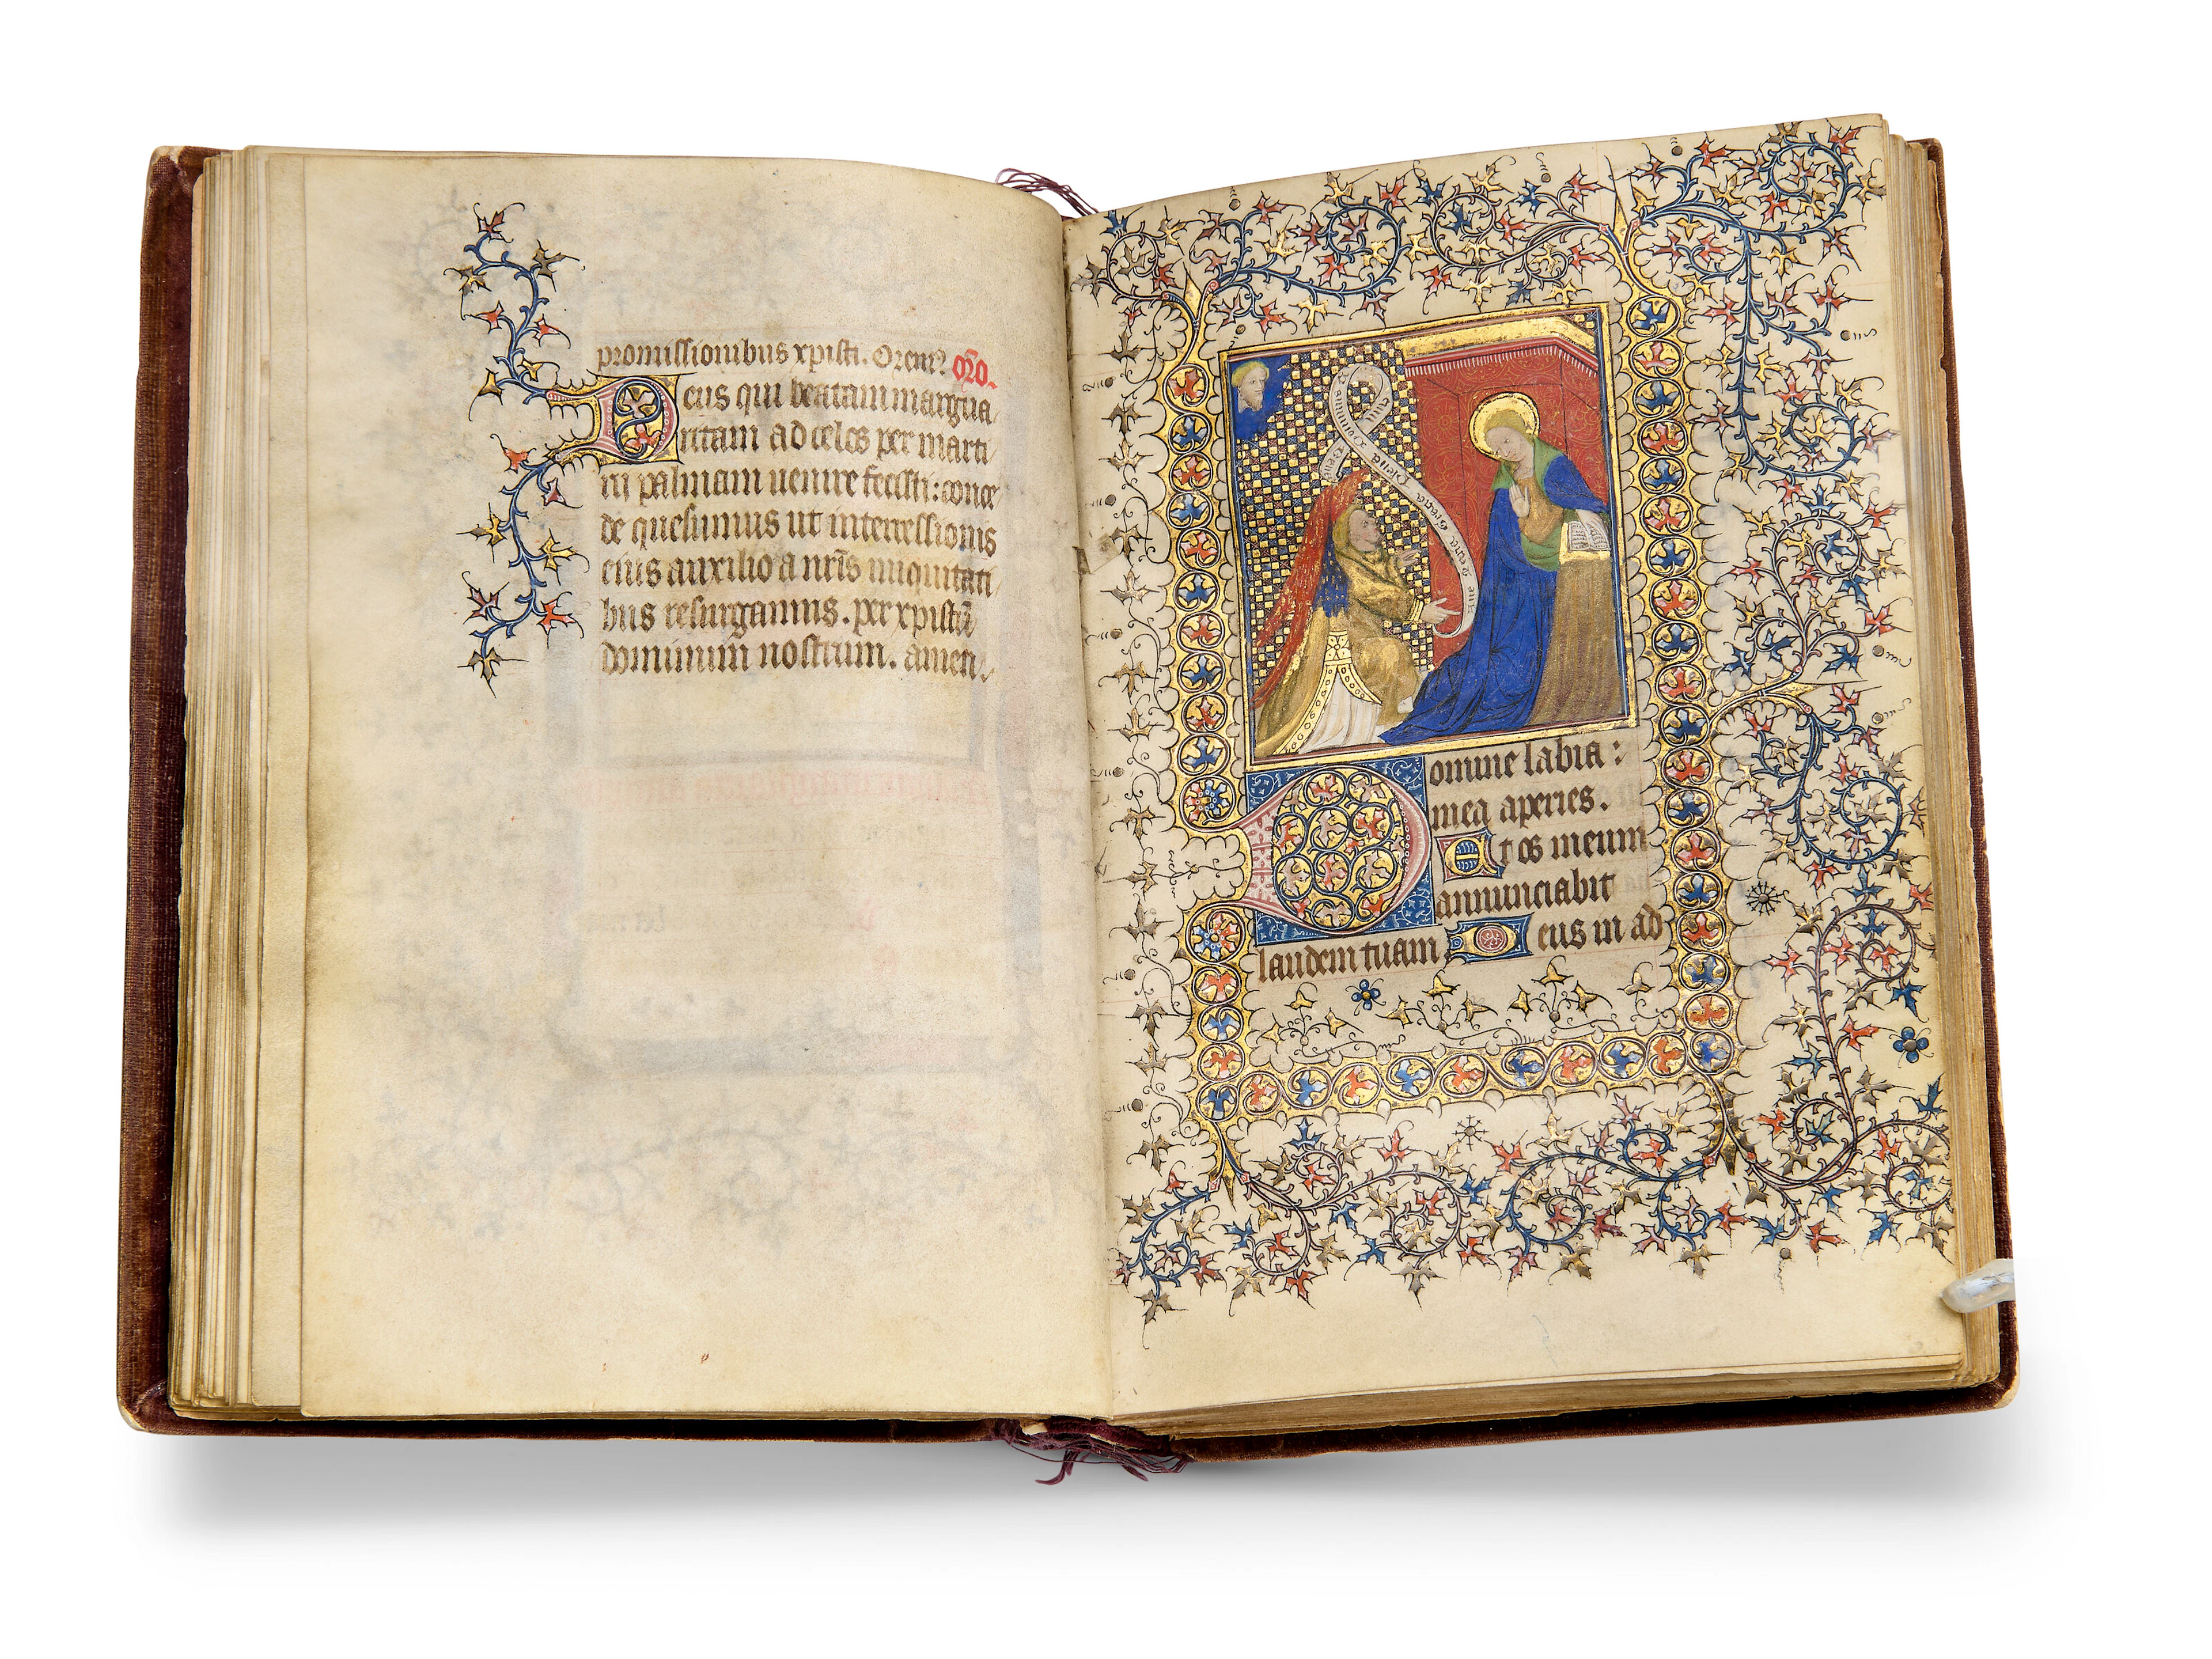 promissionibus xpisti. Orem9 oro.
Deus qui beatam margua
ritam ad celos per marti
rij palmam uenire fecisti: conce
de quesumus ut intercessionis
eius auxilio a nris iniquitati
bus resurgamus. per xpistu
dominum nostrum. amen.
Aue maria gracia plena dominus tecum
Domine labia
mea aperies.
Et os meum
annunciabit
laudem tuam Deus in ad